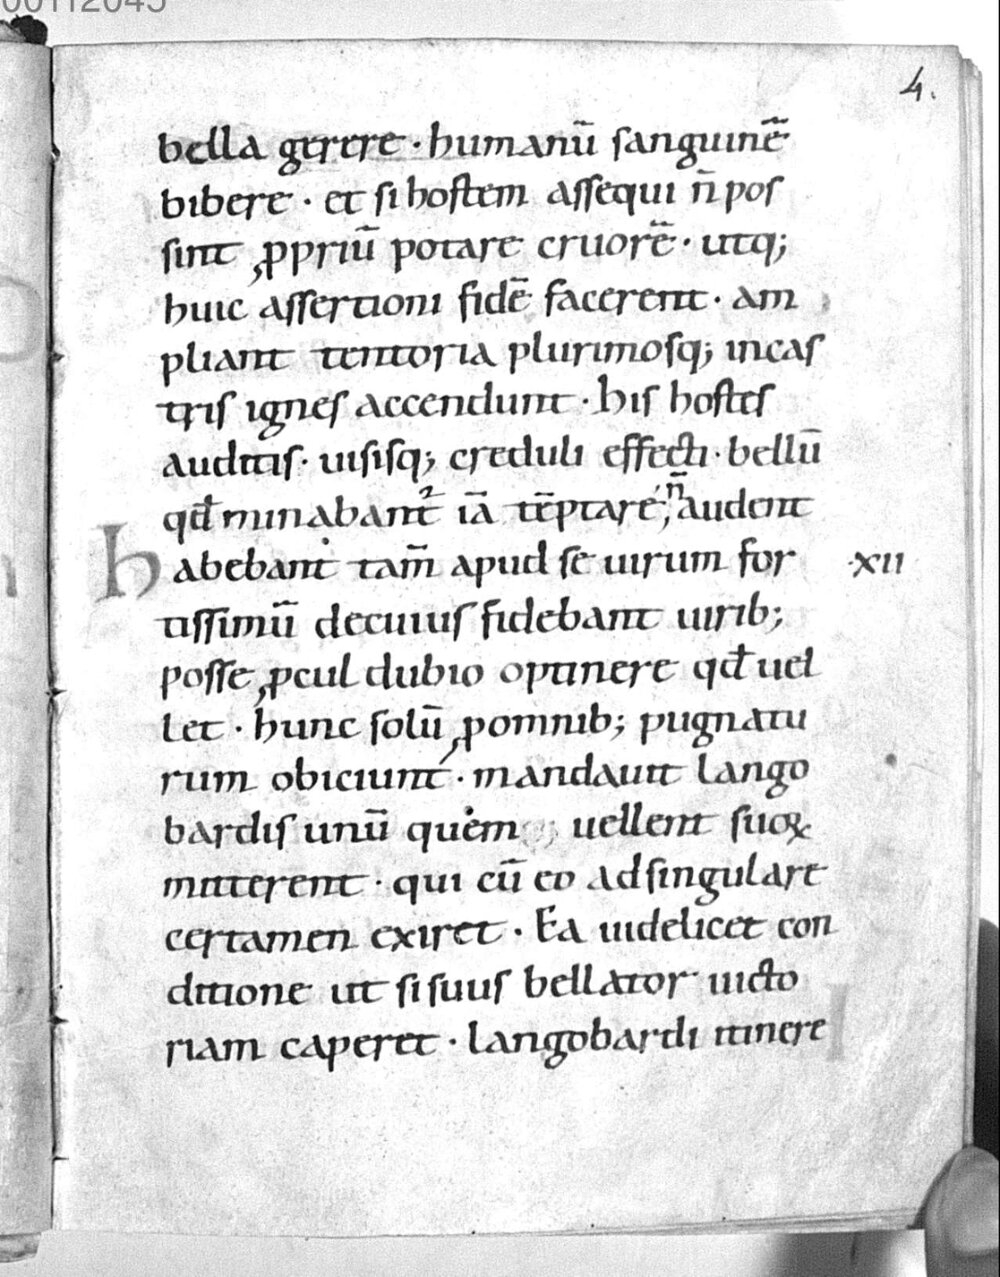 00112045
4.
bella gerere · humanū sanguinē
bibere · et si hostem assequi n̄ pos
sint ꝓpriū potare cruorē · utq;
huic assertioni fidē facerent · am
pliant tentoria plurimosq; incas
tris ignes accendunt · his hostes
auditis · uisisq; creduli effecti · bellū
qđ minabant² iā tēptare, n̄ audent
habebant tam̄ apud se uirum for ·XII
tissimū decuius fidebant uirib;
posse ꝓcul dubio optinere qđ uel
let · hunc solū ꝓomnib; pugnatu
rum obiciunt · mandauit lango
bardis unū quem uellent suoꝝ
mitterent · qui cū eo adsingulare
certamen exiret · Ea uidelicet con
ditione ut si suus bellator uicto
riam caperet · langobardi itinere